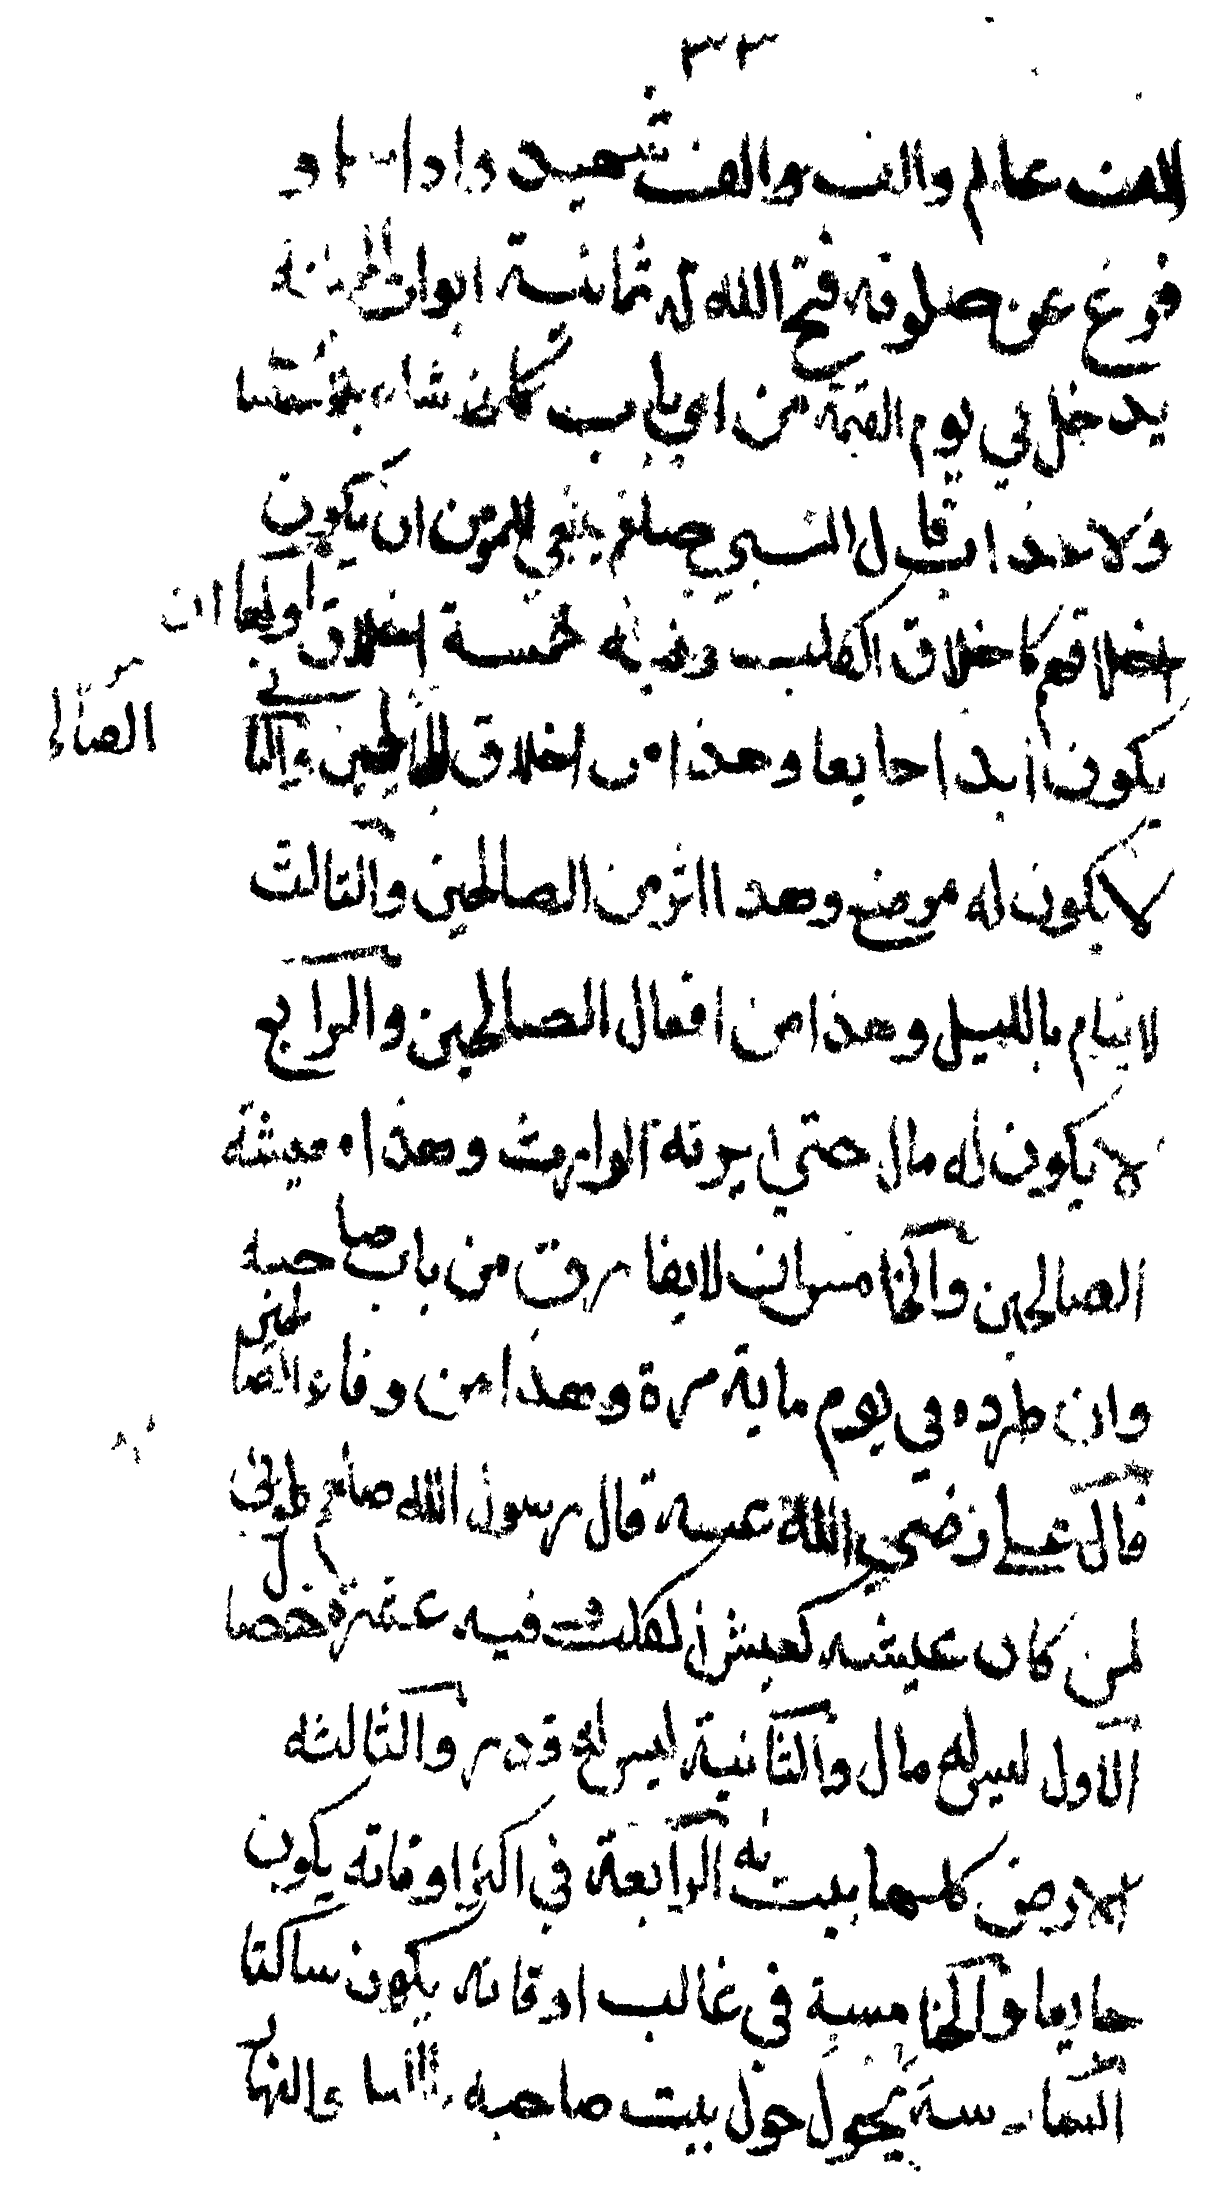 ٣٣
الف عالم والف والف شهيد واذا
فرغ عن صلوته فتح الله له ثمانية ابواب الجنة
يدخل في يوم القيمة من اي باب كان شاء بلا حساب
ولا عذاب قال النبي صلعم ينبغي للمؤمن ان يكون
اخلاقهم كاخلاق الكلب وفيه خمسة اخلاق اولها ان
يكون ابدا جايعا وهذا من اخلاق الصالحين والثاني
الصالح
لا يكون له موضع وهذا اثر من الصالحين والثالث
لا ينام بالليل وهذا من افعال الصالحين والرابع
لا يكون له مال حتى يرثه الوارث وهذا معيشة
الصالحين والخامس ان لا يفارق من باب صاحبه
وان طرده في يوم ماية مرة وهذا من وفاء الصالحين
قال علي رضي الله عنه قال رسول الله صلعم طوبى
لمن كان عيشه كعيش الكلب فيه عشرة خصال
الاول ليس له مال والثانية ليس له قدر والثالثه
الارض كلها بيت له الرابعة في اكثر اوقاته يكون
جايعا والخامسة في غالب اوقاته يكون ساكتا
السادسة يحول حول بيت صاحبه والنهار